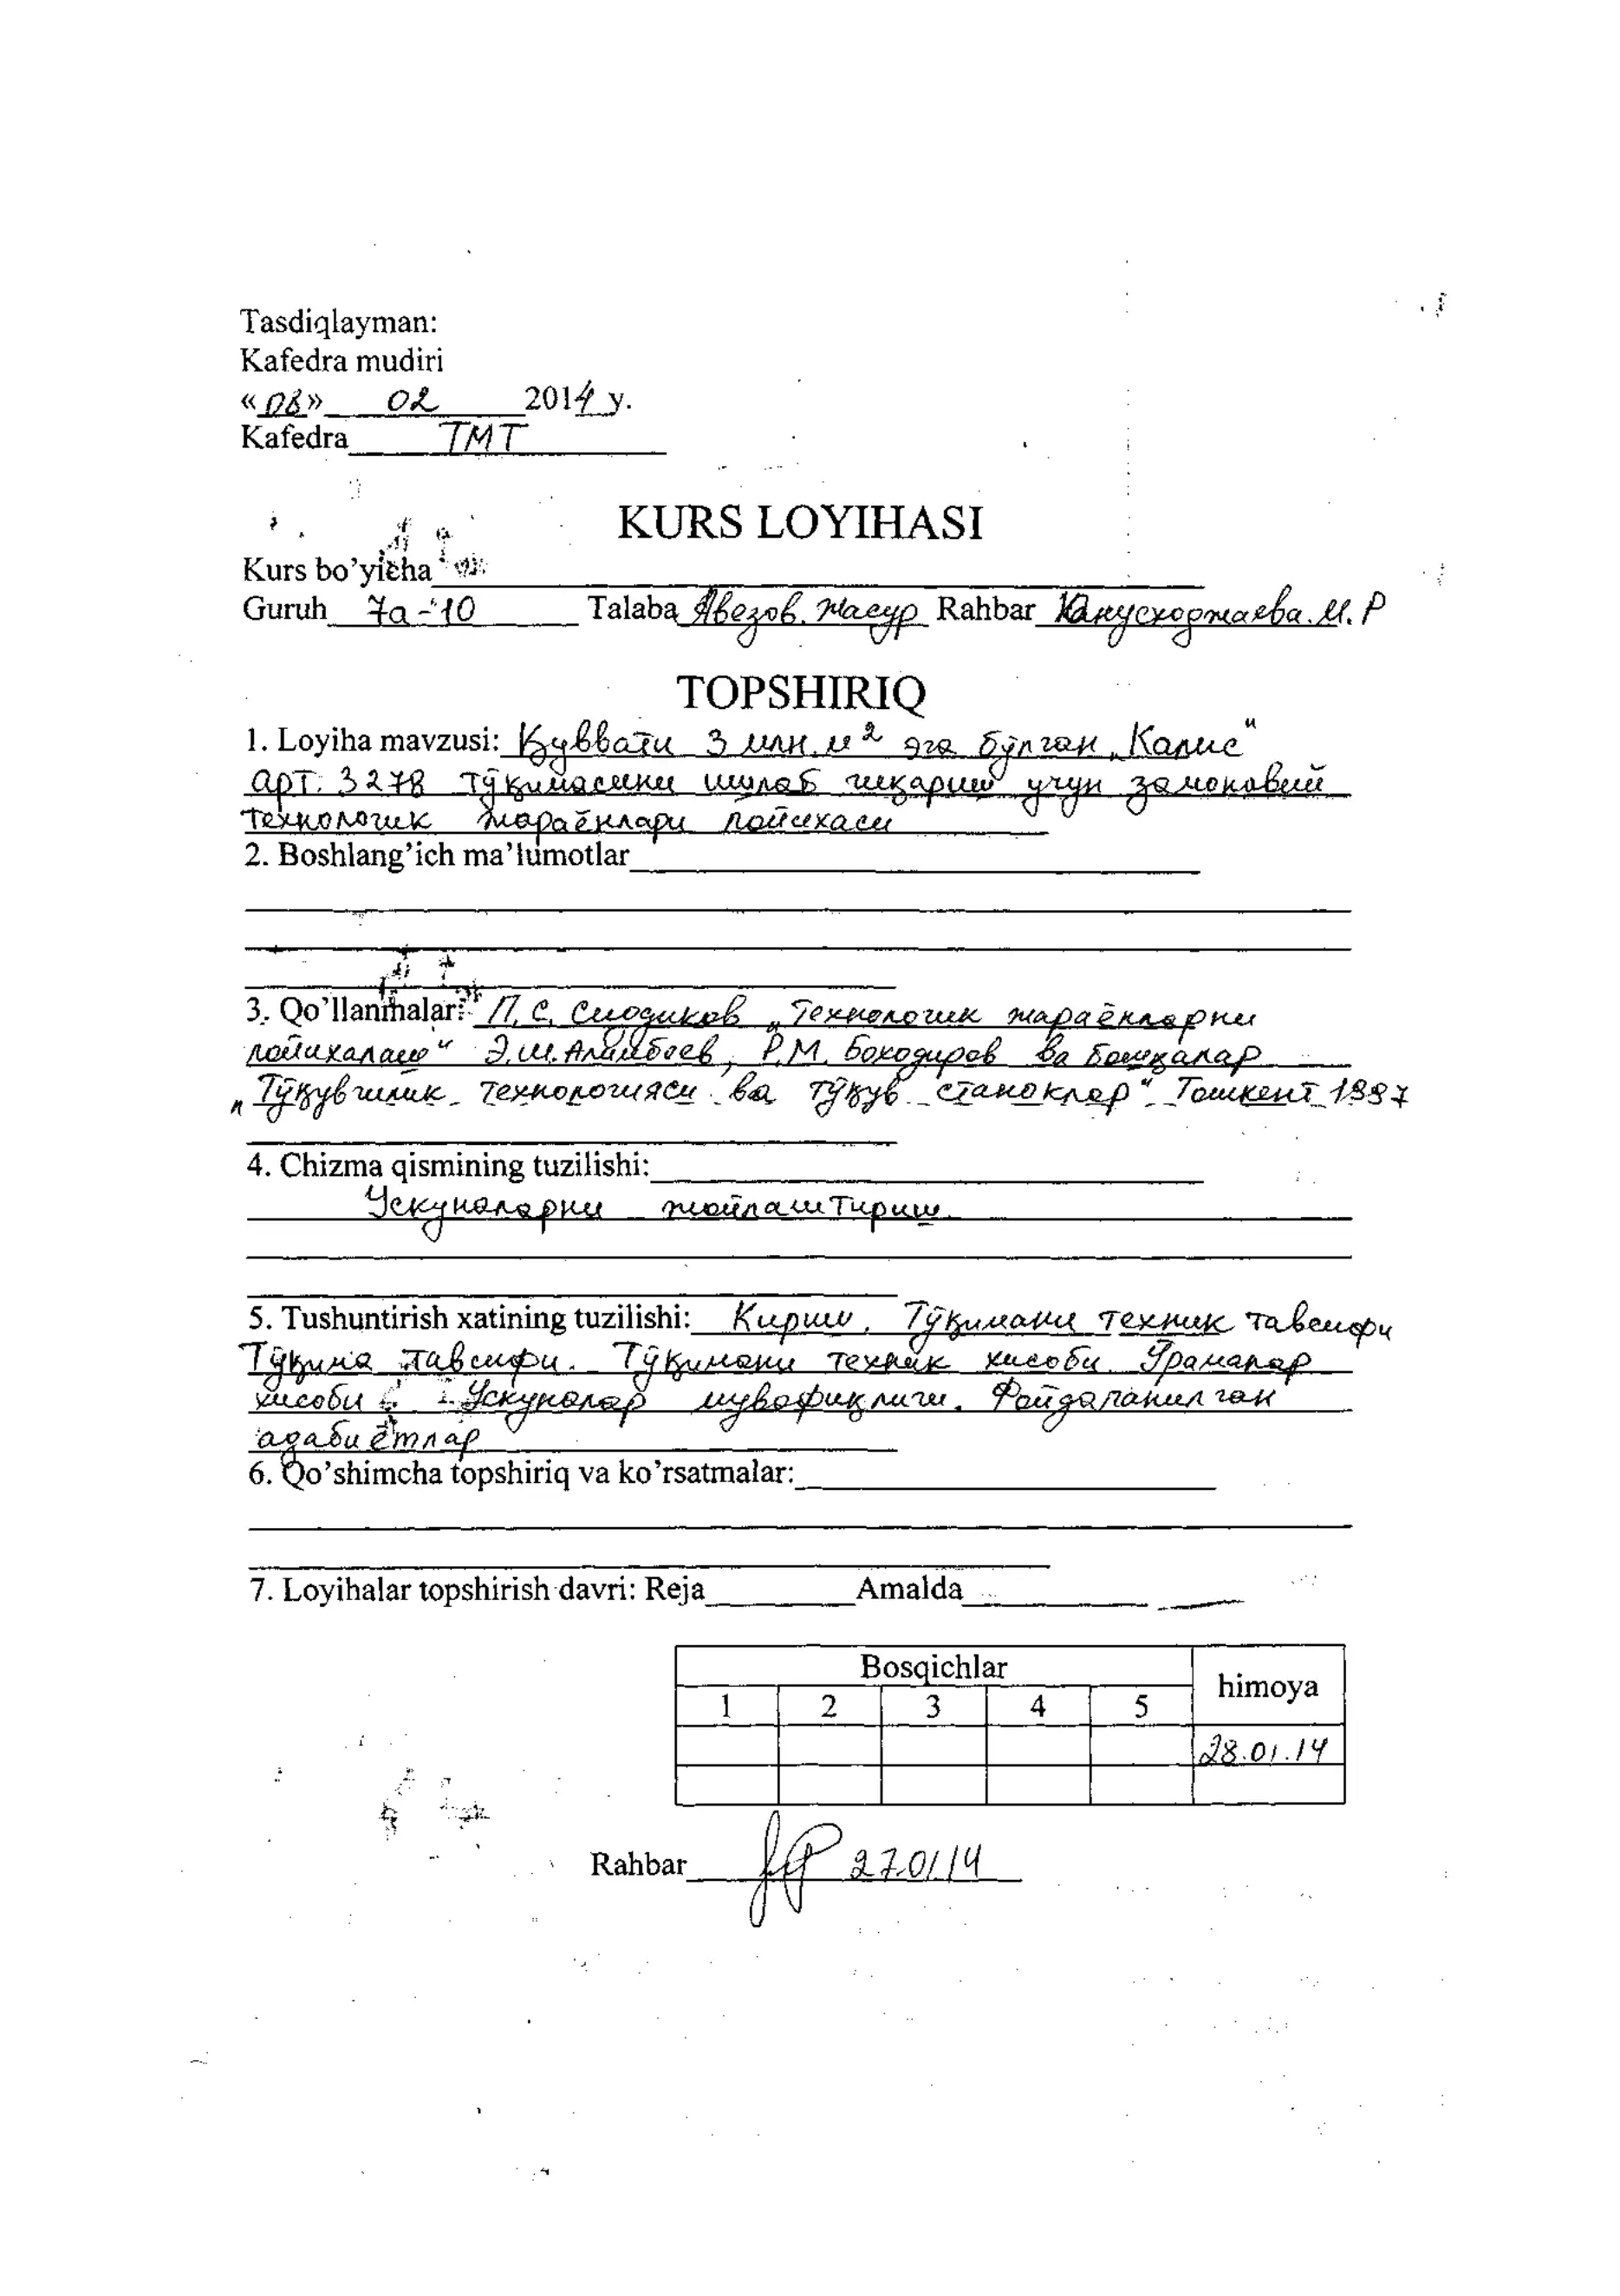 Tasdiqlayman:
Kafedra mudiri
«08» 02 2014 y.
Kafedra ТМТ
KURS LOYIHASI
Kurs bo’yicha
Guruh 7а-10 Talaba Авезов. Жасур Rahbar Юнусходжаева. М. Р
TOPSHIRIQ
1. Loyiha mavzusi: Қуввати 3 млн. м² эга бўлган „Калис“
арт. 3278 тўқимасини ишлаб чиқариш учун замонавий
технологик жараёнлари лойихаси
2. Boshlang’ich ma’lumotlar
3. Qo’llanmalar: П. С. Сиодиков „Технологик жараёнларни
лойихалаш“ Э.Ш. Алимбоев, Р.М. Боходиров ва бошқалар
„Тўқувчилик технологияси ва тўқув станоклар“ Тошкент 1987
4. Chizma qismining tuzilishi:
Ускуналарни жойлаштириш
5. Tushuntirish xatining tuzilishi: Кириш. Тўқимани техник тавсифи
Тўқима тавсифи. Тўқимани техник хисоби. Ўрамалар
хисоби. Ускуналар мувофиқлиги. Фойдаланилган
адабиётлар
6. Qo’shimcha topshiriq va ko’rsatmalar:
7. Loyihalar topshirish davri: Reja Amalda
Bosqichlar himoya
1 2 3 4 5
28.01.14
Rahbar 27.01.14